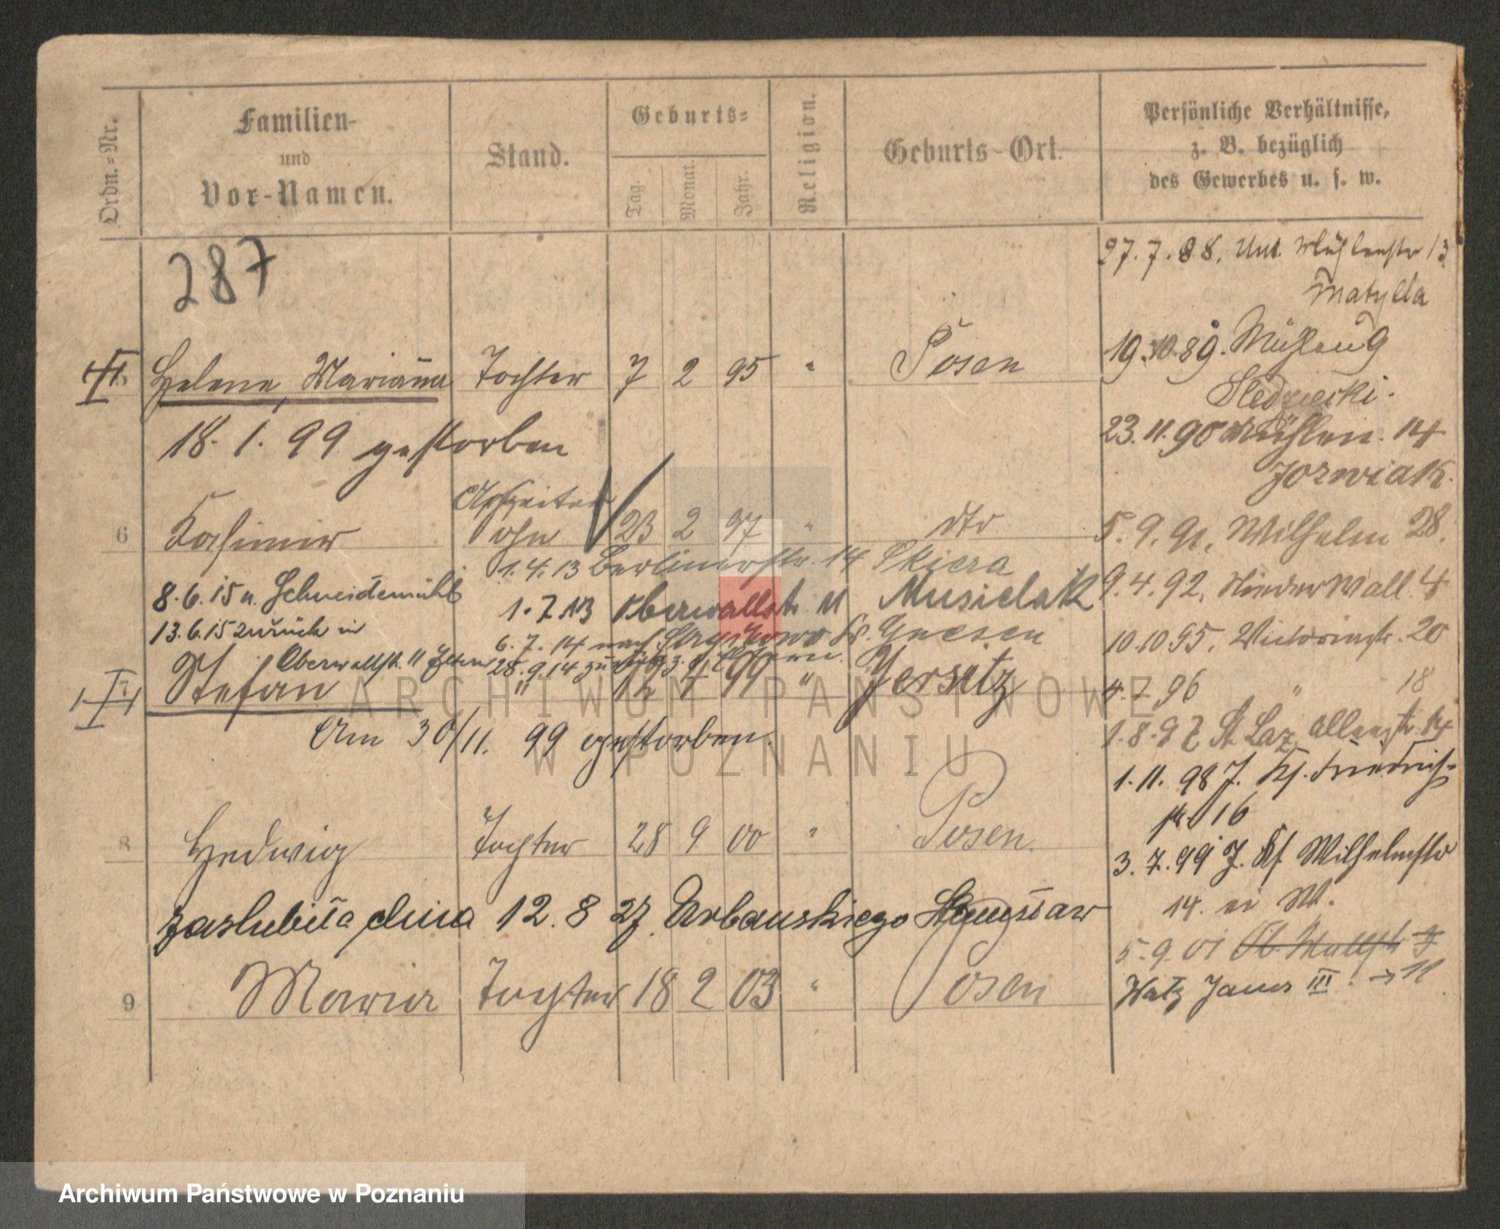 Ordn.-Nr.
Familien-
und
Vor-Namen.
Stand.
Geburts-
Tag.
Monat.
Jahr.
Religion.
Geburts-Ort.
Persönliche Verhältnisse,
z. B. bezüglich
des Gewerbes u. s. w.
287
27.7.88. Unt. Mühlenstr 13
Matylla
Helene, Marianna Tochter 7 2 95 " Posen
19.10.89. Mühlen 9
18.1.99 gestorben
23.11.90 Mühlen. 14
Jozwiak.
6 Kasimir Arbeiter Sohn 23 2 97 " dto
5.9.91. Wilhelm 28.
1.4.13 Berlinerstr. 14 Skiera
8.6.15 n. Schneidemühl
1.7.13 Oberwallstr. 11 Musielak
9.4.92. Niederwall. 4
13.6.15 zurück in
Oberwallst. 11 Eltern
6.7.14 nach Kr. Gnesen
28.9.14 zu
10.10.95. Victoriastr. 20
7 Stefan " 12 4 99 " Jersitz
4.7.96 " 18
Am 30/11. 99 gestorben
1.8.97 St. Laz. 14
1.11.98 J. Kf. Friedrich-
str 16
8 Hedwig Tochter 28 9 00 " Posen.
3.7.99 J. Kf Wilhelmstr
14. W.
zaślubiła dnia 12.8 27. Urbańskiego Stanisław
5.9.01 Ob. Wallstr
9 Maria Tochter 18 2 03 " Posen
III. → 11
ARCHIWUM PAŃSTWOWE
W POZNANIU
Archiwum Państwowe w Poznaniu